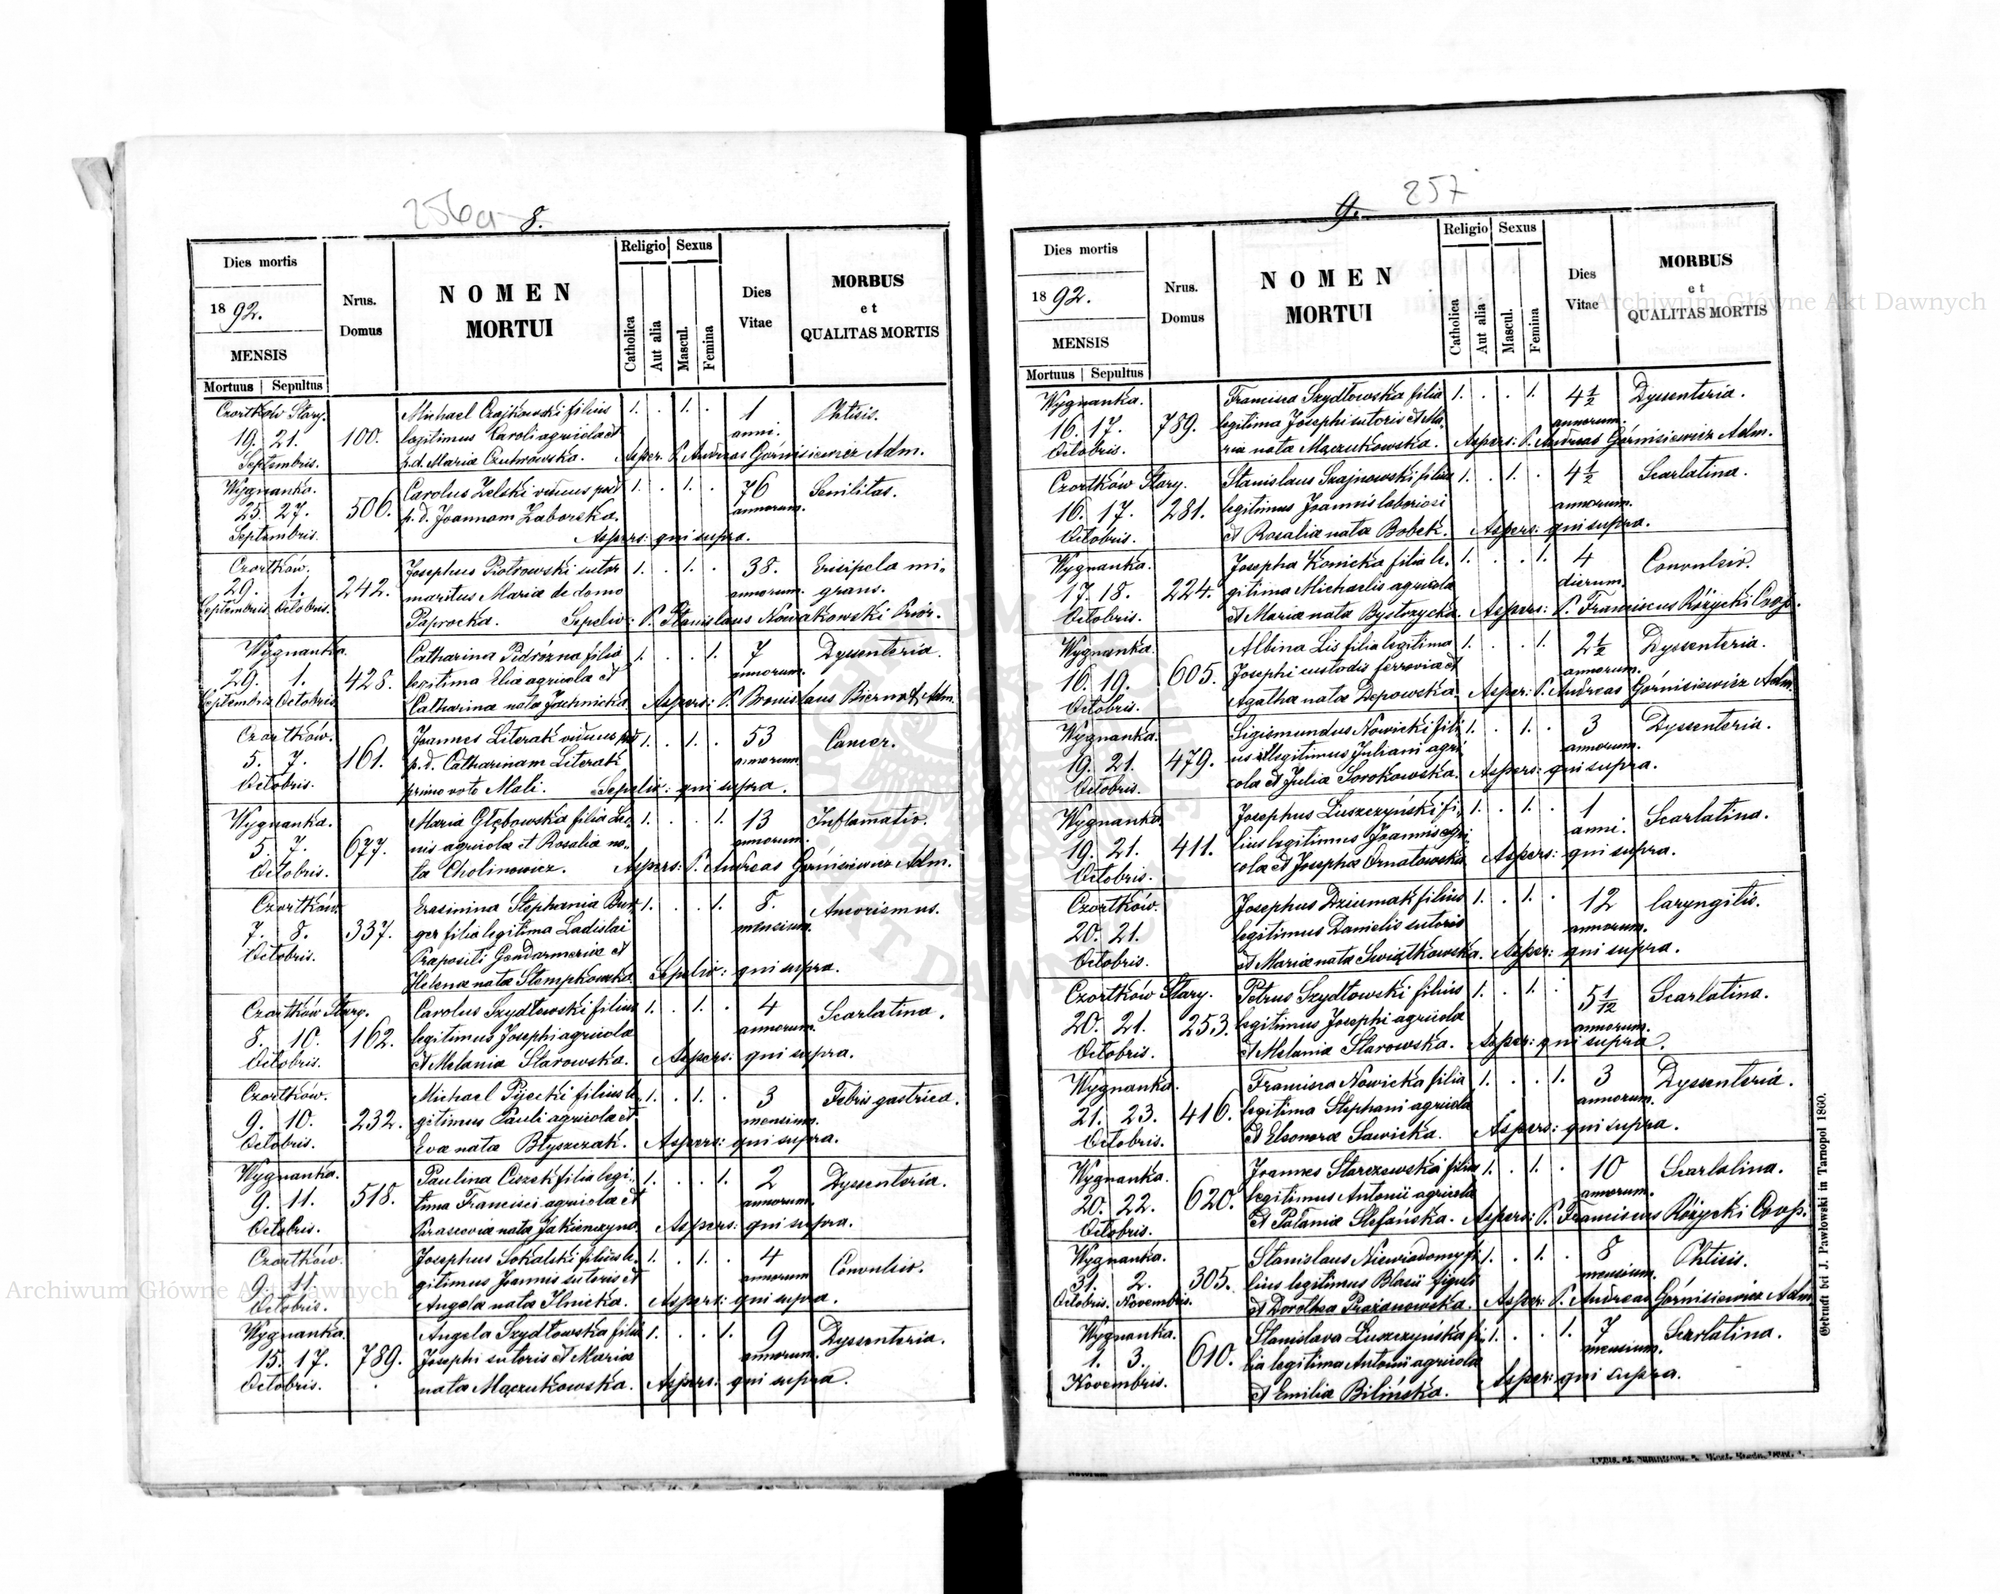 256a 8.
Dies mortis
1892.
MENSIS
Mortuus | Sepultus
Nrus.
Domus
NOMEN
MORTUI
Religio | Sexus
Catholica
Aut alia
Mascul.
Femina
Dies
Vitae
MORBUS
et
QUALITAS MORTIS
Czortków Stary.
19. 21.
Septembris.
100.
Michael Czajkowski filius
legitimus Caroli agricola et
p.d. Maria Czutrowska. Asper. P. Andreas Górnisiewicz Adm.
1. . 1. .
1
anni.
Phtisis.
Wygnanka.
25. 27.
Septembris.
506.
Carolus Zelski viduus post
p. d. Joannam Zaborska.
Aspers: qui supra.
1. . 1. .
76
annorum.
Senilitas.
Czortków.
29. 1.
Septembris. Octobris.
242.
Josephus Piotrowski sutor
maritus Maria de domo
Paprocka. Sepeliv: P. Stanislaus Nowakowski Prior.
1. . 1. .
38.
annorum.
Erisipela mi-
grans.
Wygnanka.
29. 1.
Septembris Octobris.
428.
Catharina Podróżna filia
legitima Elia agricola et
Catharina nata Jachnicka Aspers: P. Bronislaus Biernat Adm.
1. . . 1.
7
annorum.
Dyssenteria.
Czortków.
5. 7.
Octobris.
161.
Joannes Literak viduus post
p.d. Catharinam Literak
primo voto Mali. Sepeliv: qui supra.
1. . 1. .
53
annorum
Cancer.
Wygnanka.
5. 7.
Octobris.
677.
Maria Głębowska filia
nis agricola et Rosalia na-
ta Cholinowicz. Aspers: P. Andreas Górnisiewicz Adm.
1. . . 1.
13
annorum.
Inflamatio.
Czortków.
7. 8.
Octobris.
337.
Erasmina Stephania
ger filia legitima Ladislai
Prapositi Gendarmeria et
Helena nata Stempkowska. Sepeliv: qui supra.
1. . . 1.
8.
mensium.
Aneorismus.
Czortków Stary.
8. 10.
Octobris.
162.
Carolus Szydłowski filius
legitimus Josephi agricola
et Melania Starowska. Aspers: qui supra.
1. . 1. .
4
annorum.
Scarlatina.
Czortków.
9. 10.
Octobris.
232.
Michael Pijecki filius le-
gitimus Pauli agricola et
Eva nata Błyszczak. Aspers: qui supra.
1. . 1. .
3
mensium.
Febris gastrica.
Wygnanka.
9. 11.
Octobris.
518.
Paulina Ciszek filia legi-
tima Francisci agricola et
Parascevia nata Jakienczyna Aspers: qui supra.
1. . . 1.
2
annorum.
Dyssenteria.
Czortków.
9. 11.
Octobris.
Josephus Sokalski filius le-
gitimus Joannis sutoris et
Angela nata Ilnicka. Aspers: qui supra.
1. . 1. .
4
annorum
Convulsio.
Wygnanka.
15. 17.
Octobris.
789.
Angela Szydłowska filia
Josephi sutoris et Maria
nata Mączukowska. Aspers: qui supra.
1. . . 1.
9
annorum.
Dyssenteria.
9. 257
Dies mortis
1892.
MENSIS
Mortuus | Sepultus
Nrus.
Domus
NOMEN
MORTUI
Religio | Sexus
Catholica
Aut alia
Mascul.
Femina
Dies
Vitae
MORBUS
et
QUALITAS MORTIS
Wygnanka.
16. 17.
Octobris.
789.
Francisca Szydłowska filia
legitima Josephi sutoris et Ma-
ria nata Mączukowska. Aspers: P. Andreas Górnisiewicz Adm.
1. . . 1.
4 1/2
annorum.
Dyssenteria.
Czortków Stary.
16. 17.
Octobris.
281.
Stanislaus Szajnowski filius
legitimus Joannis laboriosi
et Rosalia nata Bobek. Aspers: qui supra.
1. . 1. .
4 1/2
annorum.
Scarlatina.
Wygnanka.
17. 18.
Octobris.
224.
Josepha Konicka filia le-
gitima Michaelis agricola
et Maria nata Bystrzycka. Aspers: P. Franciscus Różycki Coop.
1. . . 1.
4
dierum.
Convulsio.
Wygnanka.
16. 19.
Octobris.
605.
Albina Lis filia legitima
Josephi custodis ferrovia et
Agatha nata Depowska. Asper: P. Andreas Górnisiewicz Adm.
1. . . 1.
2 1/2
annorum.
Dyssenteria.
Wygnanka.
19. 21.
Octobris.
479.
Sigismundus Nowicki fili-
us illegitimus Juliani agri
cola et Julia Sorokowska. Aspers: qui supra.
1. . 1. .
3
annorum.
Dyssenteria.
Wygnanka.
19. 21.
Octobris.
411.
Josephus Luszczyński fi-
lius legitimus Joannis agri-
cola et Josepha Ornatowska. Aspers: qui supra.
1. . 1. .
1
anni.
Scarlatina.
Czortków.
20. 21.
Octobris.
Josephus Dziemak filius
legitimus Danielis sutoris
et Maria nata Swiątkowska. Asper: qui supra.
1. . 1. .
12
annorum.
Laryngitis.
Czortków Stary.
20. 21.
Octobris.
253.
Petrus Szydłowski filius
legitimus Josephi agricola
et Melania Starowska. Asper: qui supra.
1. . 1. .
5 1/12
annorum.
Scarlatina.
Wygnanka.
21. 23.
Octobris.
416.
Francisca Nowicka filia
legitima Stephani agricola
et Eleonora Sawicka. Aspers: qui supra.
1. . . 1.
3
annorum.
Dyssenteria.
Wygnanka.
20. 22.
Octobris.
620.
Joannes Starzewski filius
legitimus Antonii agricola
et Połania Stefańska. Aspers: P. Franciscus Różycki Coop.
1. . 1. .
10
annorum.
Scarlatina.
Wygnanka.
31. 2.
Octobris. Novembris.
305.
Stanislaus Niewiadomy fi-
lius legitimus Blasii figuli
et Dorothea Prażanowska. Asper: P. Andreas Górnisiewicz Adm.
1. . 1. .
8
mensium.
Phtisis.
Wygnanka.
1. 3.
Novembris.
610.
Stanislava Luszczyńska fi-
lia legitima Antonii agricola
et Emilia Bilińska. Asper: qui supra.
1. . . 1.
7
mensium.
Scarlatina.
Gedruckt bei J. Pawłowski in Tarnopol 1860.
Archiwum Główne Akt Dawnych
Archiwum Główne Akt Dawnych